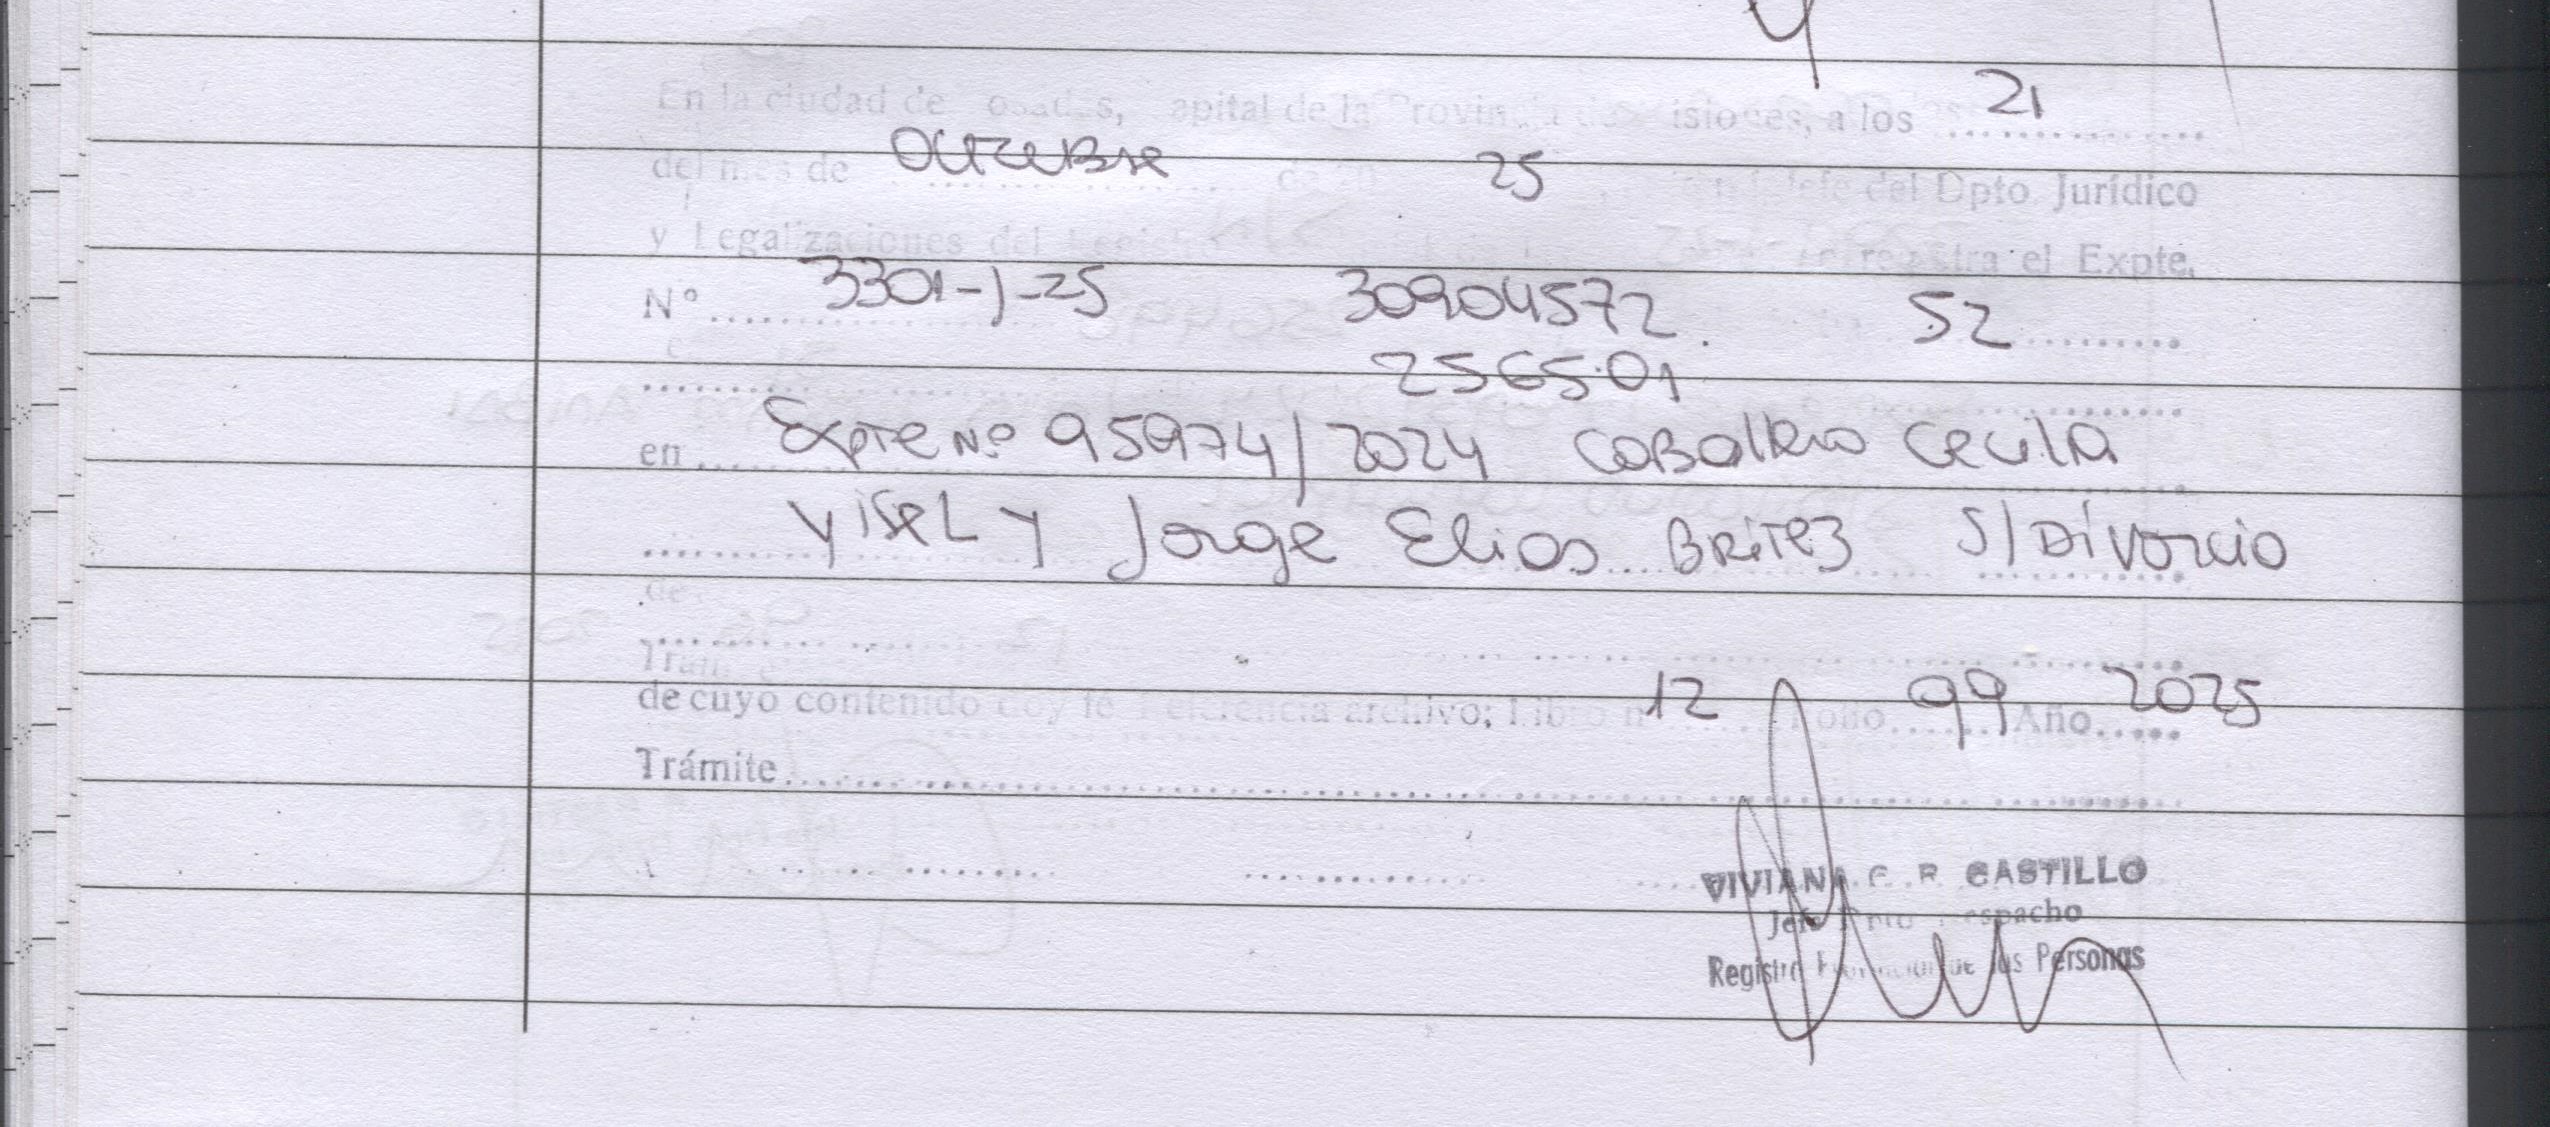 En la ciudad de osadas, apital de la Provincia de isiones, a los 21
del mes de Octubre de 20 25 Jefe del Dpto. Jurídico
y Legalizaciones del registra el Expte.
N° 3301-J-25 30904572 52
256501
en Expte Nº 95974/2024 Caballero Cecilia
Yisel y Jorge Elias Britez S/Divorcio
de
de cuyo contenido doy fé Referencia archivo; Libro n 12 Folio 99 Año 2025
Trámite
VIVIANA CASTILLO
Jefe Dpto Despacho
Registro de las Personas